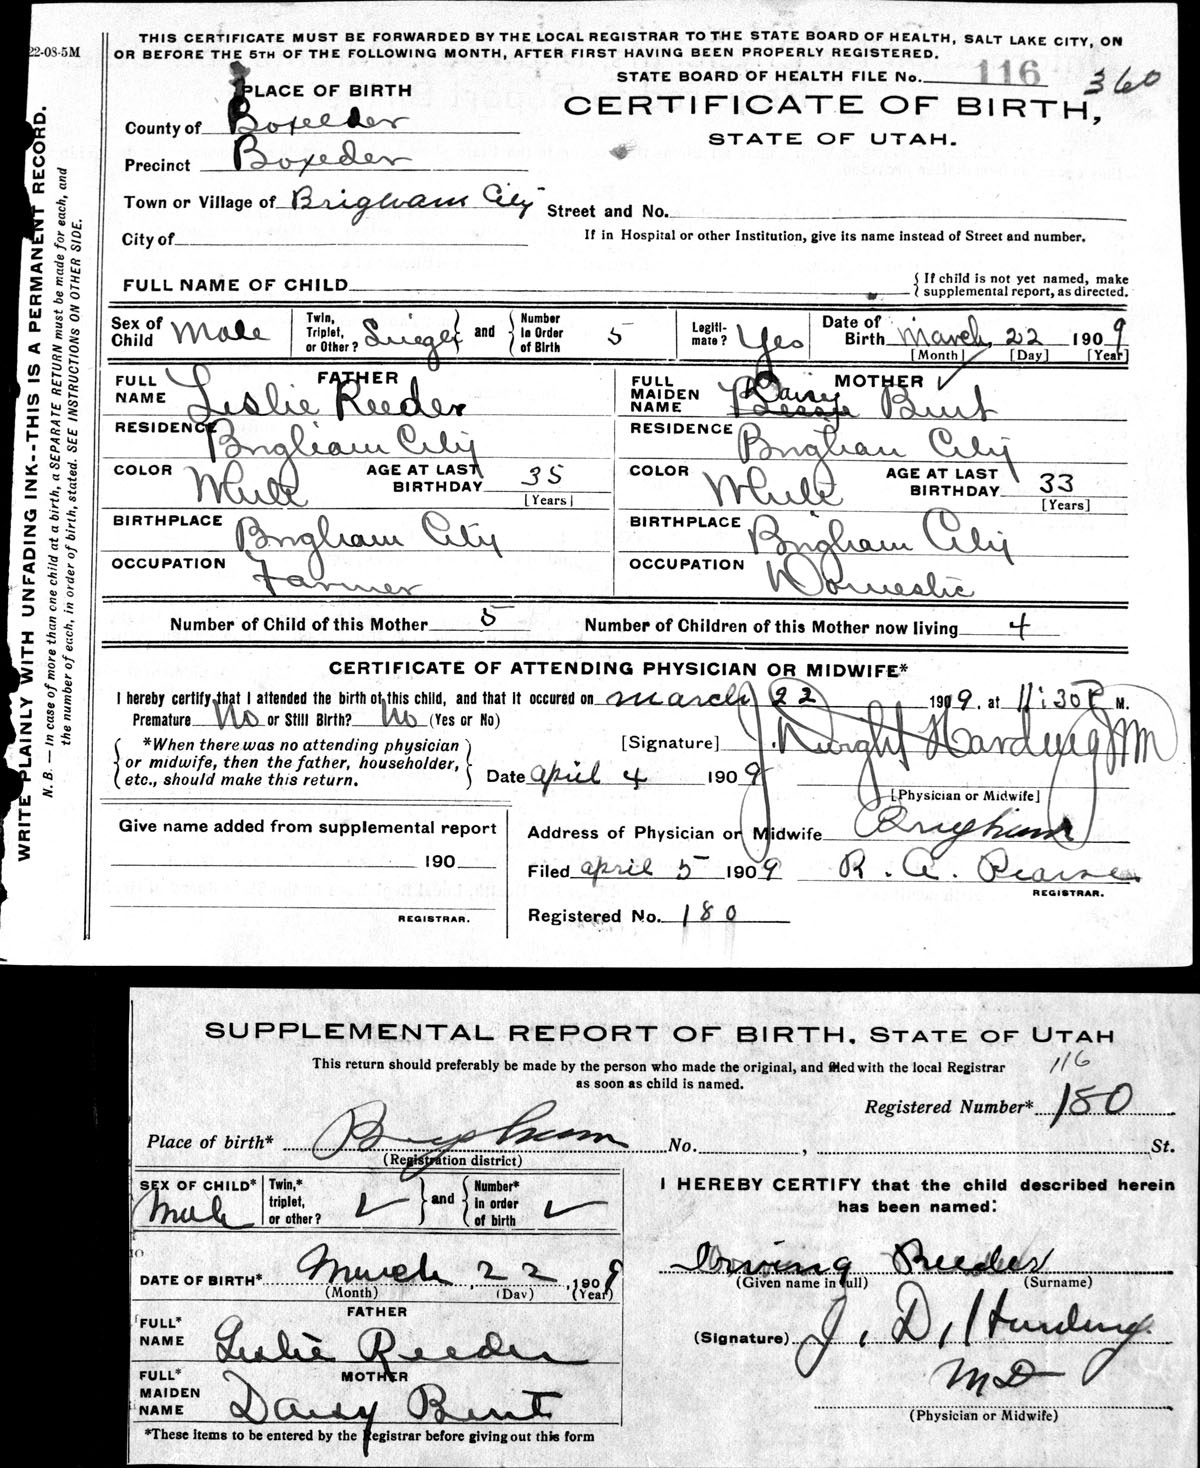 22-08-5M
THIS CERTIFICATE MUST BE FORWARDED BY THE LOCAL REGISTRAR TO THE STATE BOARD OF HEALTH, SALT LAKE CITY, ON
OR BEFORE THE 5TH OF THE FOLLOWING MONTH, AFTER FIRST HAVING BEEN PROPERLY REGISTERED.
STATE BOARD OF HEALTH FILE No. 116 360
PLACE OF BIRTH
CERTIFICATE OF BIRTH,
STATE OF UTAH.
County of Boxelder
Precinct Boxeder
Town or Village of Brigham City Street and No.
City of If in Hospital or other Institution, give its name instead of Street and number.
FULL NAME OF CHILD { If child is not yet named, make
supplemental report, as directed.
Sex of Child Male Twin, Triplet, or Other? Singel and Number in Order of Birth 5 Legiti-mate? Yes Date of Birth March 22 1909
[Month] [Day] [Year]
FATHER MOTHER
FULL NAME Leslie Reeder FULL MAIDEN NAME Daisy Bessie Burt
RESIDENCE Brigham City RESIDENCE Brigham City
COLOR White AGE AT LAST BIRTHDAY 35 [Years] COLOR White AGE AT LAST BIRTHDAY 33 [Years]
BIRTHPLACE Brigham City BIRTHPLACE Brigham City
OCCUPATION Farmer OCCUPATION Domestic
Number of Child of this Mother 5 Number of Children of this Mother now living 4
CERTIFICATE OF ATTENDING PHYSICIAN OR MIDWIFE*
I hereby certify that I attended the birth of this child, and that it occured on March 22 1909, at 11:30 P M.
Premature No or Still Birth? No (Yes or No)
*When there was no attending physician
or midwife, then the father, householder,
etc., should make this return.
[Signature] J. Dwight Harding MD
Date April 4 1909
[Physician or Midwife]
Give name added from supplemental report
190
REGISTRAR.
Address of Physician or Midwife Brigham
Filed April 5 1909 R. A. Pearse
REGISTRAR.
Registered No. 180
WRITE PLAINLY WITH UNFADING INK--THIS IS A PERMANENT RECORD.
N. B. — In case of more than one child at a birth, a SEPARATE RETURN must be made for each, and
the number of each, in order of birth, stated. SEE INSTRUCTIONS ON OTHER SIDE.
SUPPLEMENTAL REPORT OF BIRTH, STATE OF UTAH
This return should preferably be made by the person who made the original, and filed with the local Registrar
as soon as child is named.
116
Registered Number* 180
Place of birth* Brigham No. , St.
(Registration district)
SEX OF CHILD* Male Twin,* triplet, or other? ✓ and Number* in order of birth ✓
I HEREBY CERTIFY that the child described herein
has been named:
DATE OF BIRTH* March 22, 1909
(Month) (Day) (Year)
Irving Reeder
(Given name in full) (Surname)
FATHER
FULL* NAME Leslie Reeder
(Signature) J. D. Harding
MD
(Physician or Midwife)
MOTHER
FULL* MAIDEN NAME Daisy Burt
*These items to be entered by the Registrar before giving out this form